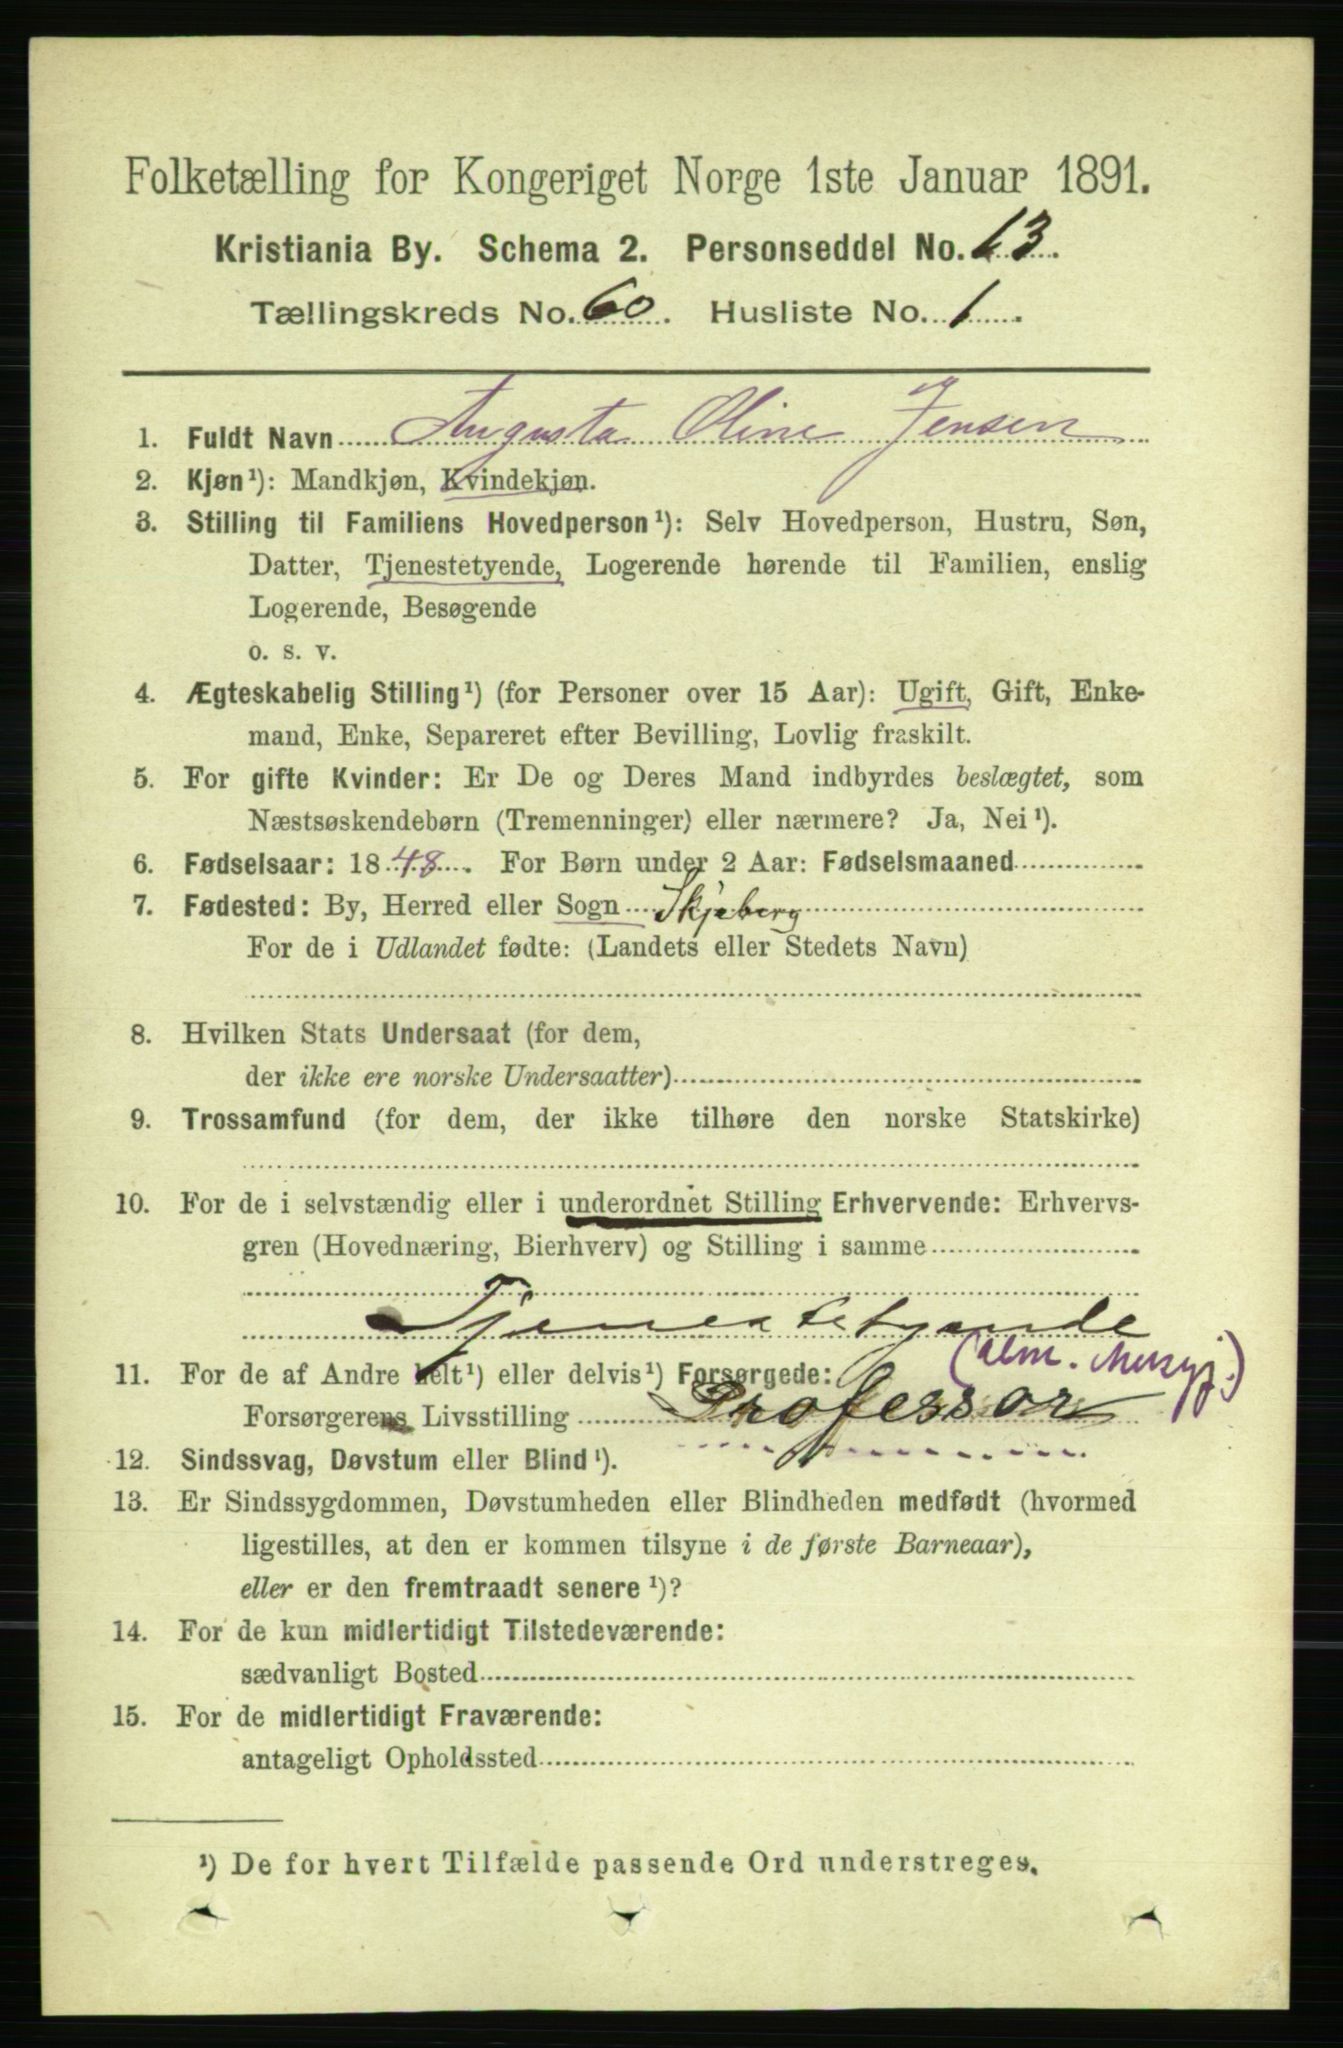 Folketælling for Kongeriget Norge 1ste Januar 1891.
Kristiania By. Schema 2. Personseddel No. 13.
Tællingskreds No. 60. Husliste No. 1.
1. Fuldt Navn Augusta Oline Jensen
2. Kjøn¹): Mandkjøn, Kvindekjøn.
3. Stilling til Familiens Hovedperson¹): Selv Hovedperson, Hustru, Søn,
Datter, Tjenestetyende, Logerende hørende til Familien, enslig
Logerende, Besøgende
o. s. v.
4. Ægteskabelig Stilling¹) (for Personer over 15 Aar): Ugift, Gift, Enke-
mand, Enke, Separeret efter Bevilling, Lovlig fraskilt.
5. For gifte Kvinder: Er De og Deres Mand indbyrdes beslægtet, som
Næstsøskendebørn (Tremenninger) eller nærmere? Ja, Nei¹).
6. Fødselsaar: 1848. For Børn under 2 Aar: Fødselsmaaned
7. Fødested: By, Herred eller Sogn Skjeberg
For de i Udlandet fødte: (Landets eller Stedets Navn)
8. Hvilken Stats Undersaat (for dem,
der ikke ere norske Undersaatter)
9. Trossamfund (for dem, der ikke tilhøre den norske Statskirke)
10. For de i selvstændig eller i underordnet Stilling Erhvervende: Erhvervs-
gren (Hovednæring, Bierhverv) og Stilling i samme
Tjenestetyende
11. For de af Andre helt¹) eller delvis¹) Forsørgede: (alm.
Forsørgerens Livsstilling Professor
12. Sindssvag, Døvstum eller Blind¹).
13. Er Sindssygdommen, Døvstumheden eller Blindheden medfødt (hvormed
ligestilles, at den er kommen tilsyne i de første Barneaar),
eller er den fremtraadt senere¹)?
14. For de kun midlertidigt Tilstedeværende:
sædvanligt Bosted
15. For de midlertidigt Fraværende:
antageligt Opholdssted
¹) De for hvert Tilfælde passende Ord understreges.